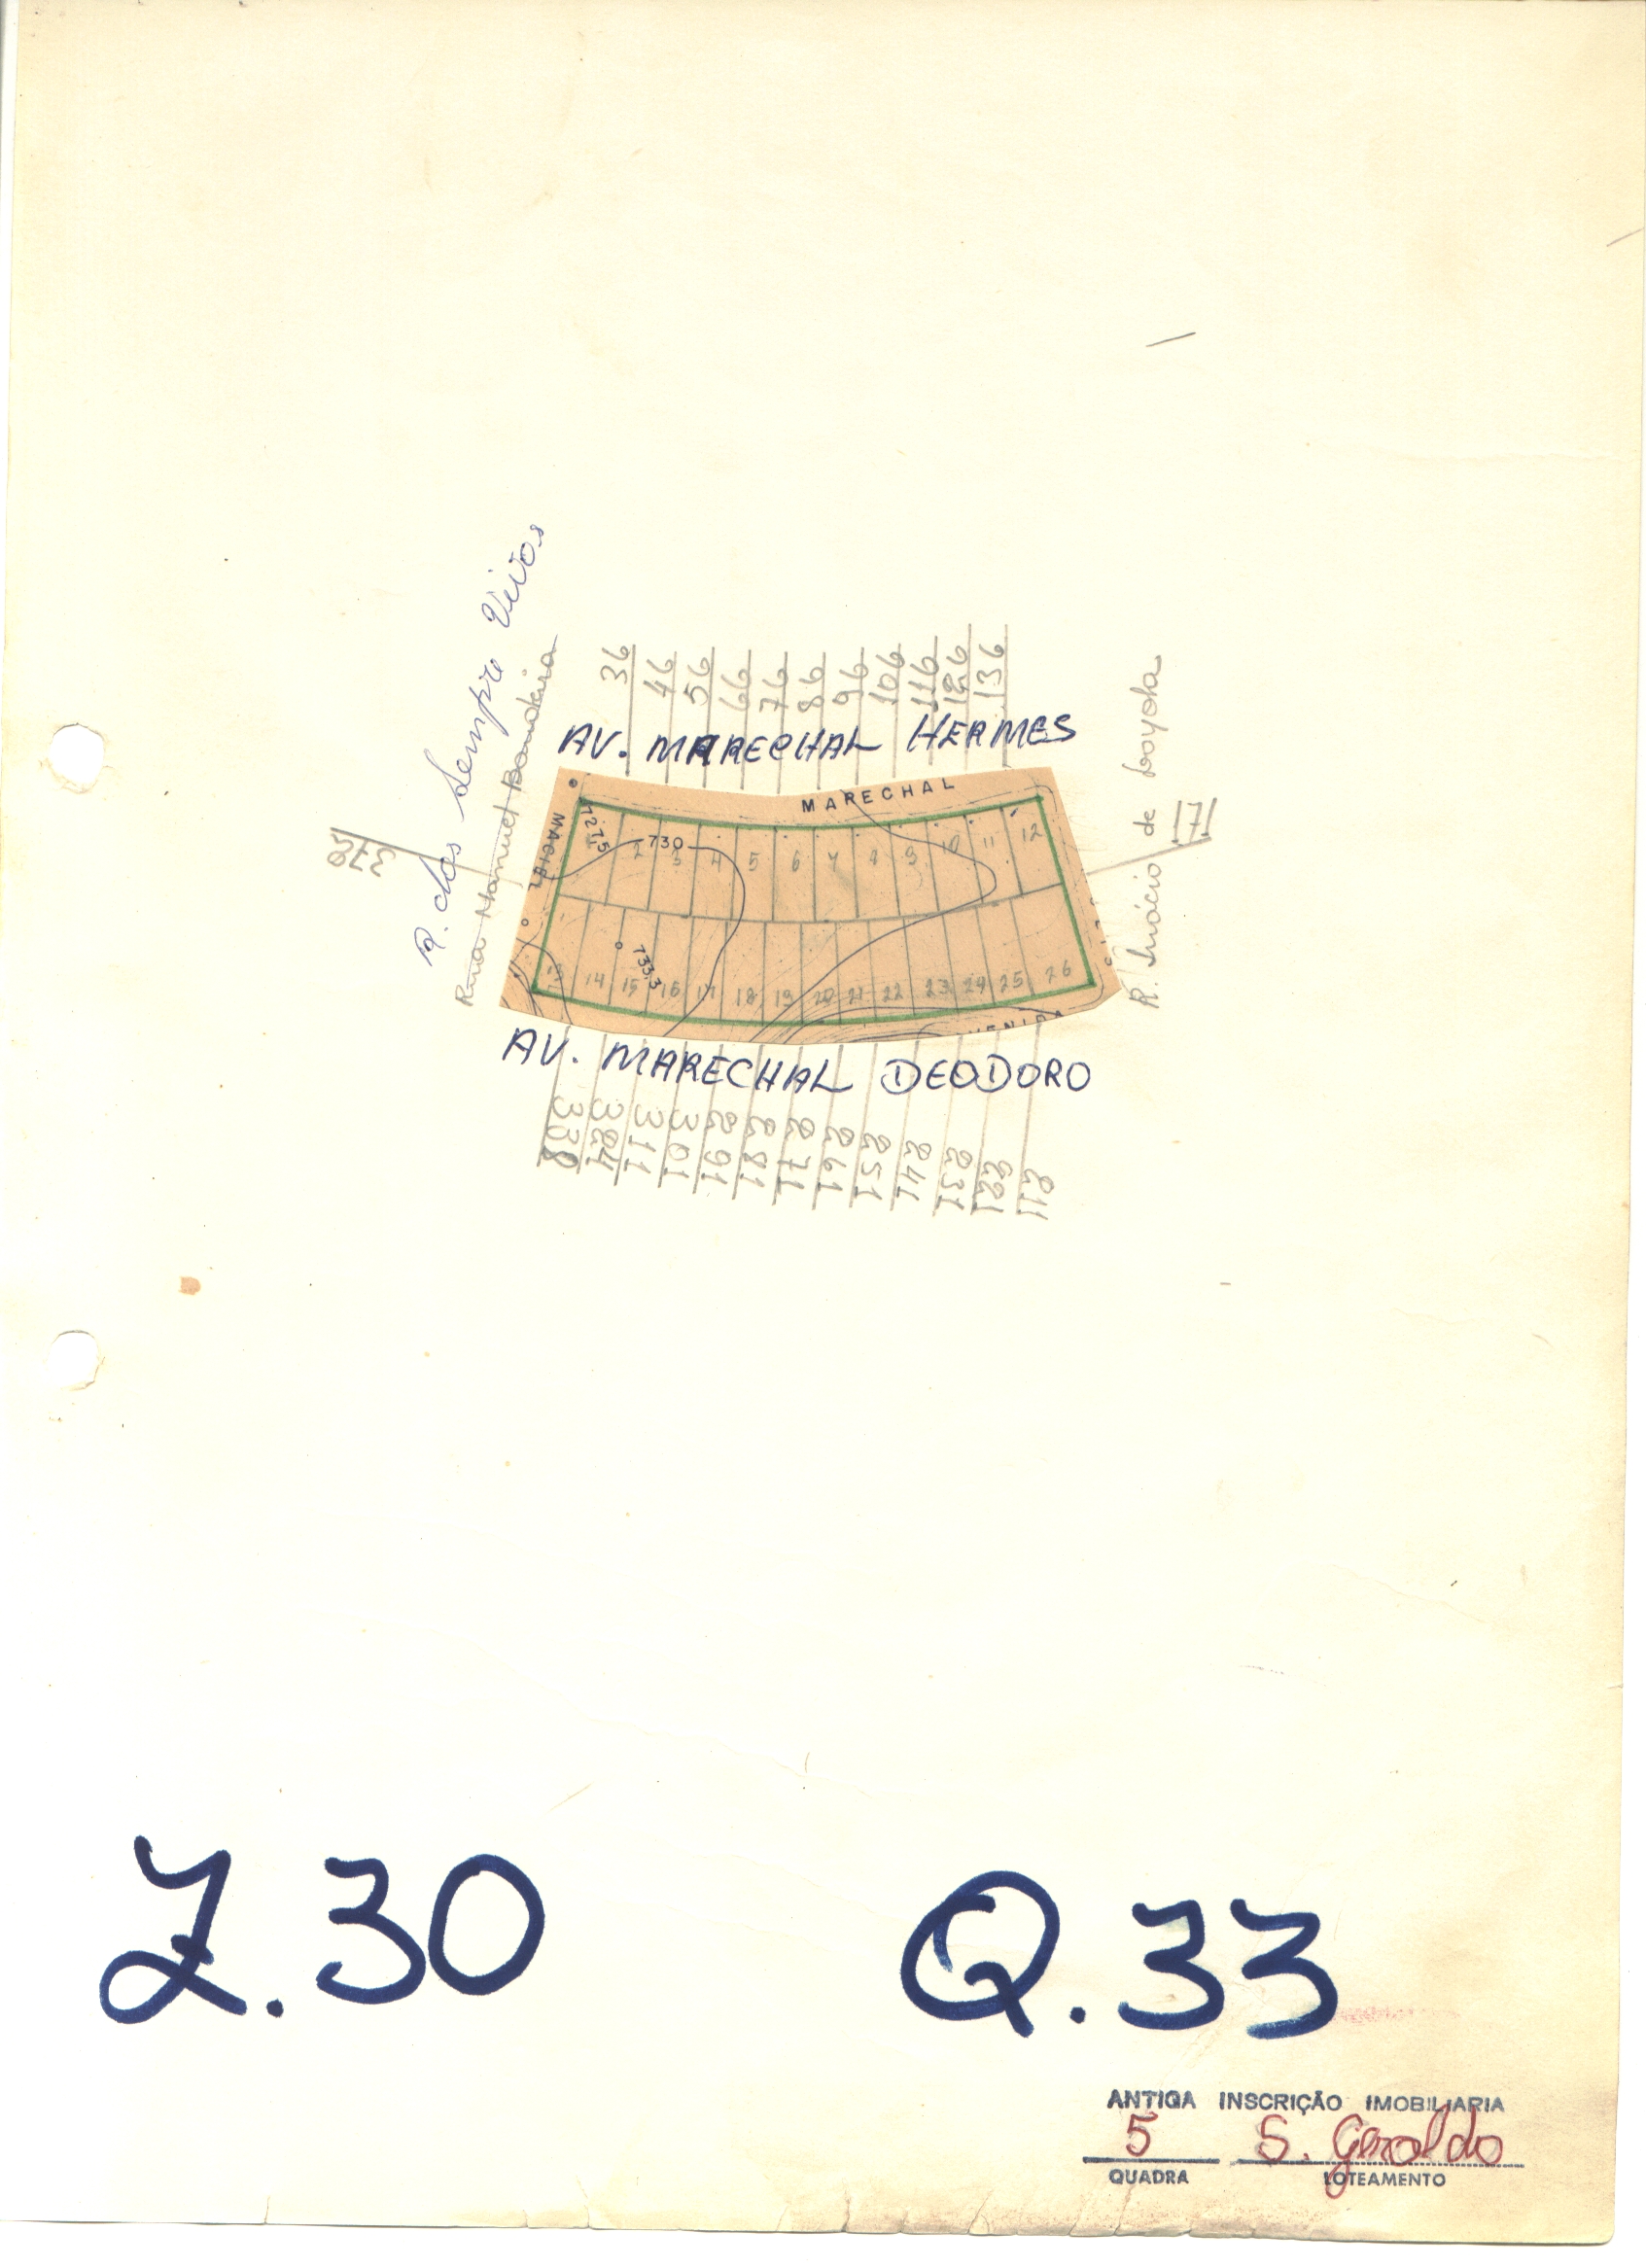 R. das Sempre Vivas
Rua Manuel Bandeira
36
46
56
66
76
86
96
106
116
126
136
AV. MARECHAL HERMES
R. Inácio de Loyola
171
378
MARECHAL
MACIEL
727.5
730
1 2 3 4 5 6 7 8 9 10 11 12
733.3
13 14 15 16 17 18 19 20 21 22 23 24 25 26
AV. MARECHAL DEODORO
338
324
311
301
291
281
271
261
251
241
231
221
211
Z.30
Q.33
ANTIGA INSCRIÇÃO IMOBILIARIA
5 S. Geraldo
QUADRA LOTEAMENTO